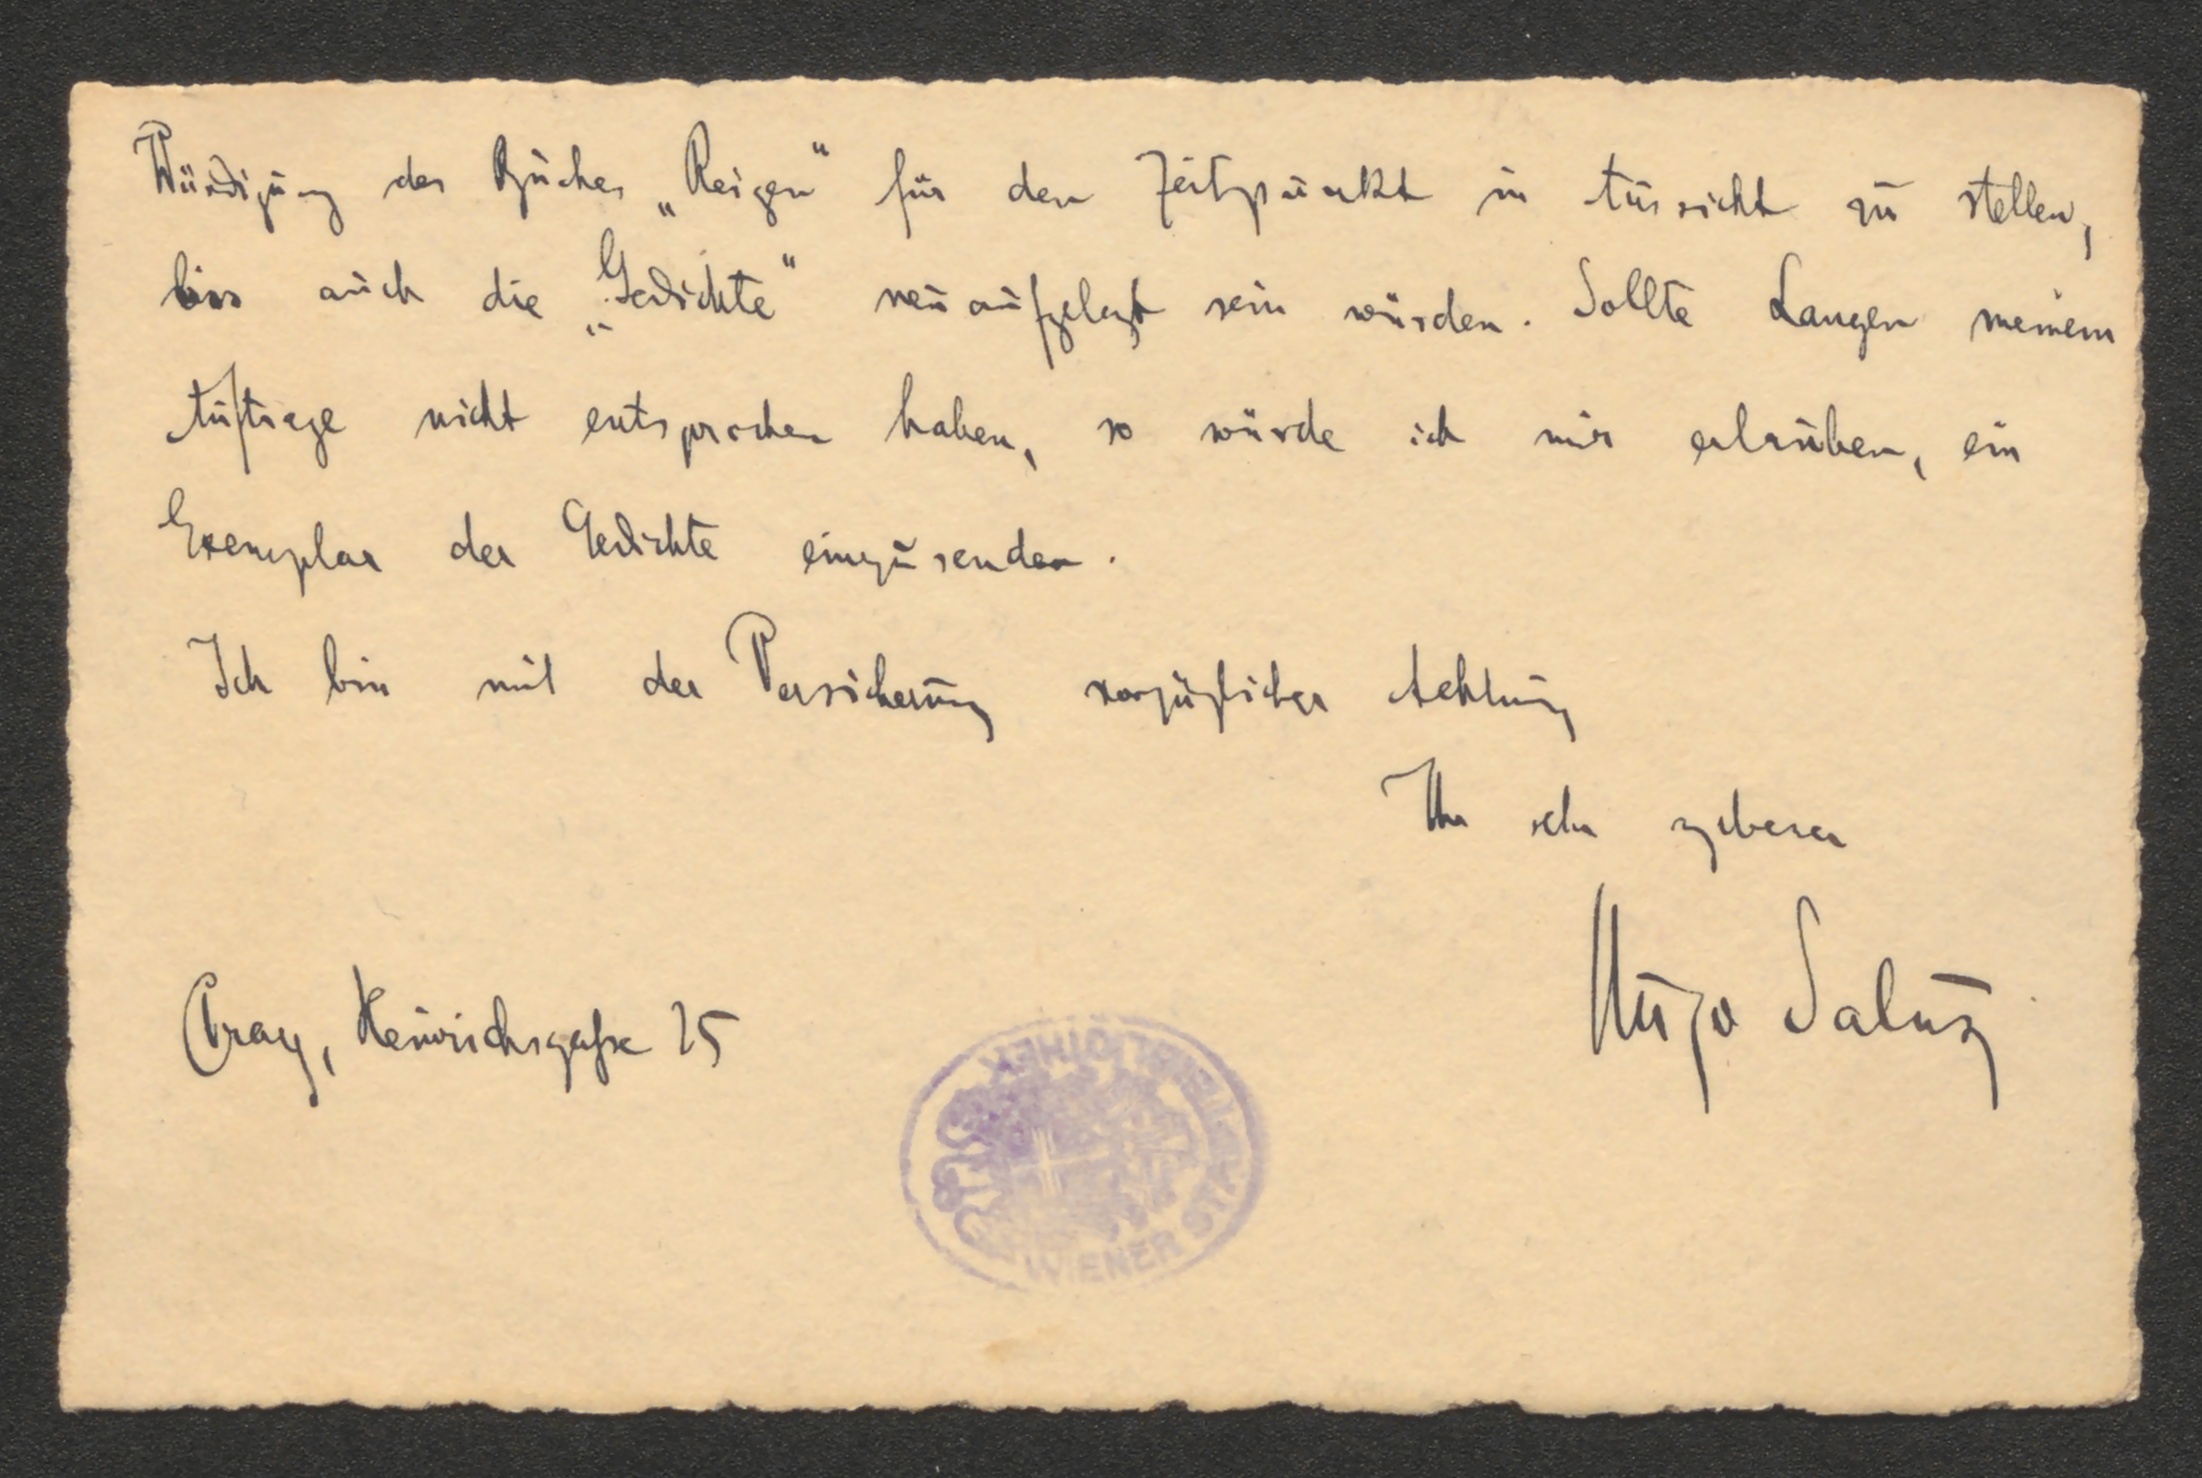 Würdigung des Buches „Reigen“ für den Zeitpunkt in Aussicht zu stellen,
bis auch die „Gedichte“ neu aufgelegt sein würden. Sollte Langen meinem
Auftrage nicht entsprochen haben, so würde ich mir erlauben, ein
Exemplar der Gedichte einzusenden.
Ich bin mit der Versicherung vorzüglicher Achtung
Ihr sehr ergebener
Hugo Salus
Prag, Heinrichsgasse 25
WIENER STADTBIBLIOTHEK